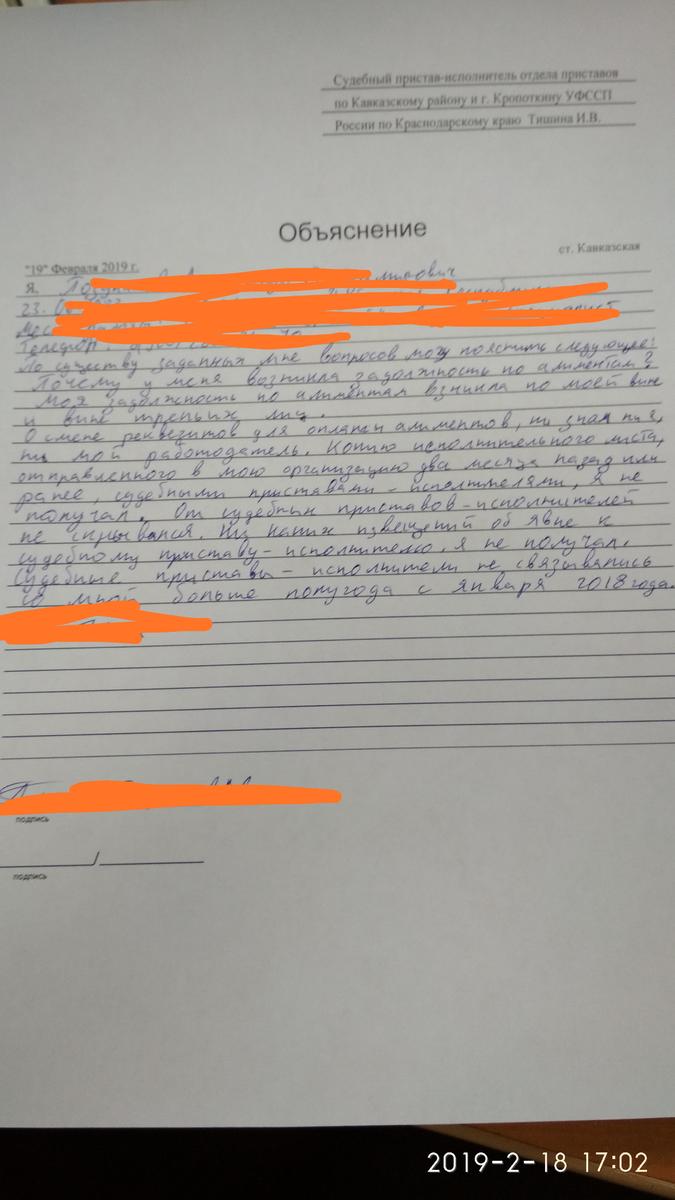 Судебный пристав-исполнитель отдела приставов
по Кавказскому району и г. Кропоткину УФССП
России по Краснодарскому краю Тишина И.В.
Объяснение
ст. Кавказская
"19" Февраля 2019 г.
Я,
23.
Телефон:
По существу заданных мне вопросов могу пояснить следующее:
Почему у меня возникла задолжность по алиментам?
Моя задолжность по алиментам взникла по моей вине
и вине третьих лиц.
О смене реквезитов для оплаты алиментов, ни знал ни я,
ни мой работодатель. Копию исполнительного листа,
отправленного в мою организацию два месяца назад или
ранее, судебными приставами-исполнителями, я не
получал. От судебных приставов-исполнителей
не скрывался. Ни каких извещений об явке к
судебному приставу-исполнителю, я не получал.
Судебные приставы-исполнители не связывались
со мной больше полугода с января 2018 года.
подпись
/
подпись
2019-2-18 17:02